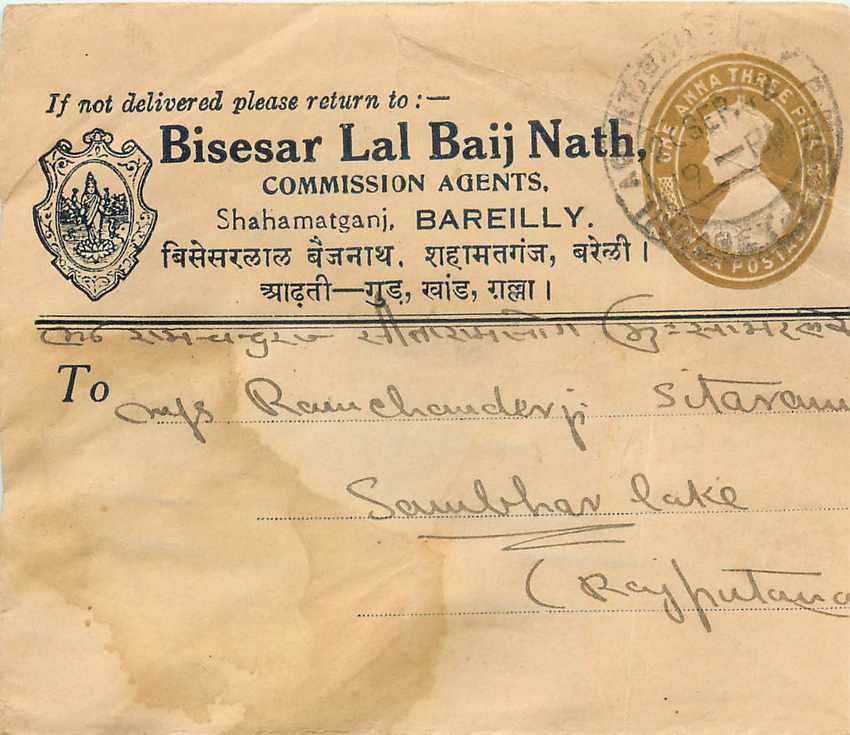 If not delivered please return to :—
Bisesar Lal Baij Nath,
COMMISSION AGENTS,
Shahamatganj, BAREILLY.
बिसेसरलाल बैजनाथ, शहामतगंज, बरेली।
आढ़ती—गुड़, खांड, ग़ल्ला।
ONE ANNA THREE PIES
POSTAGE
SEP
सीताराम
To
M/s Ramchanderji Sitaram
Sambhar lake
(Rajputana